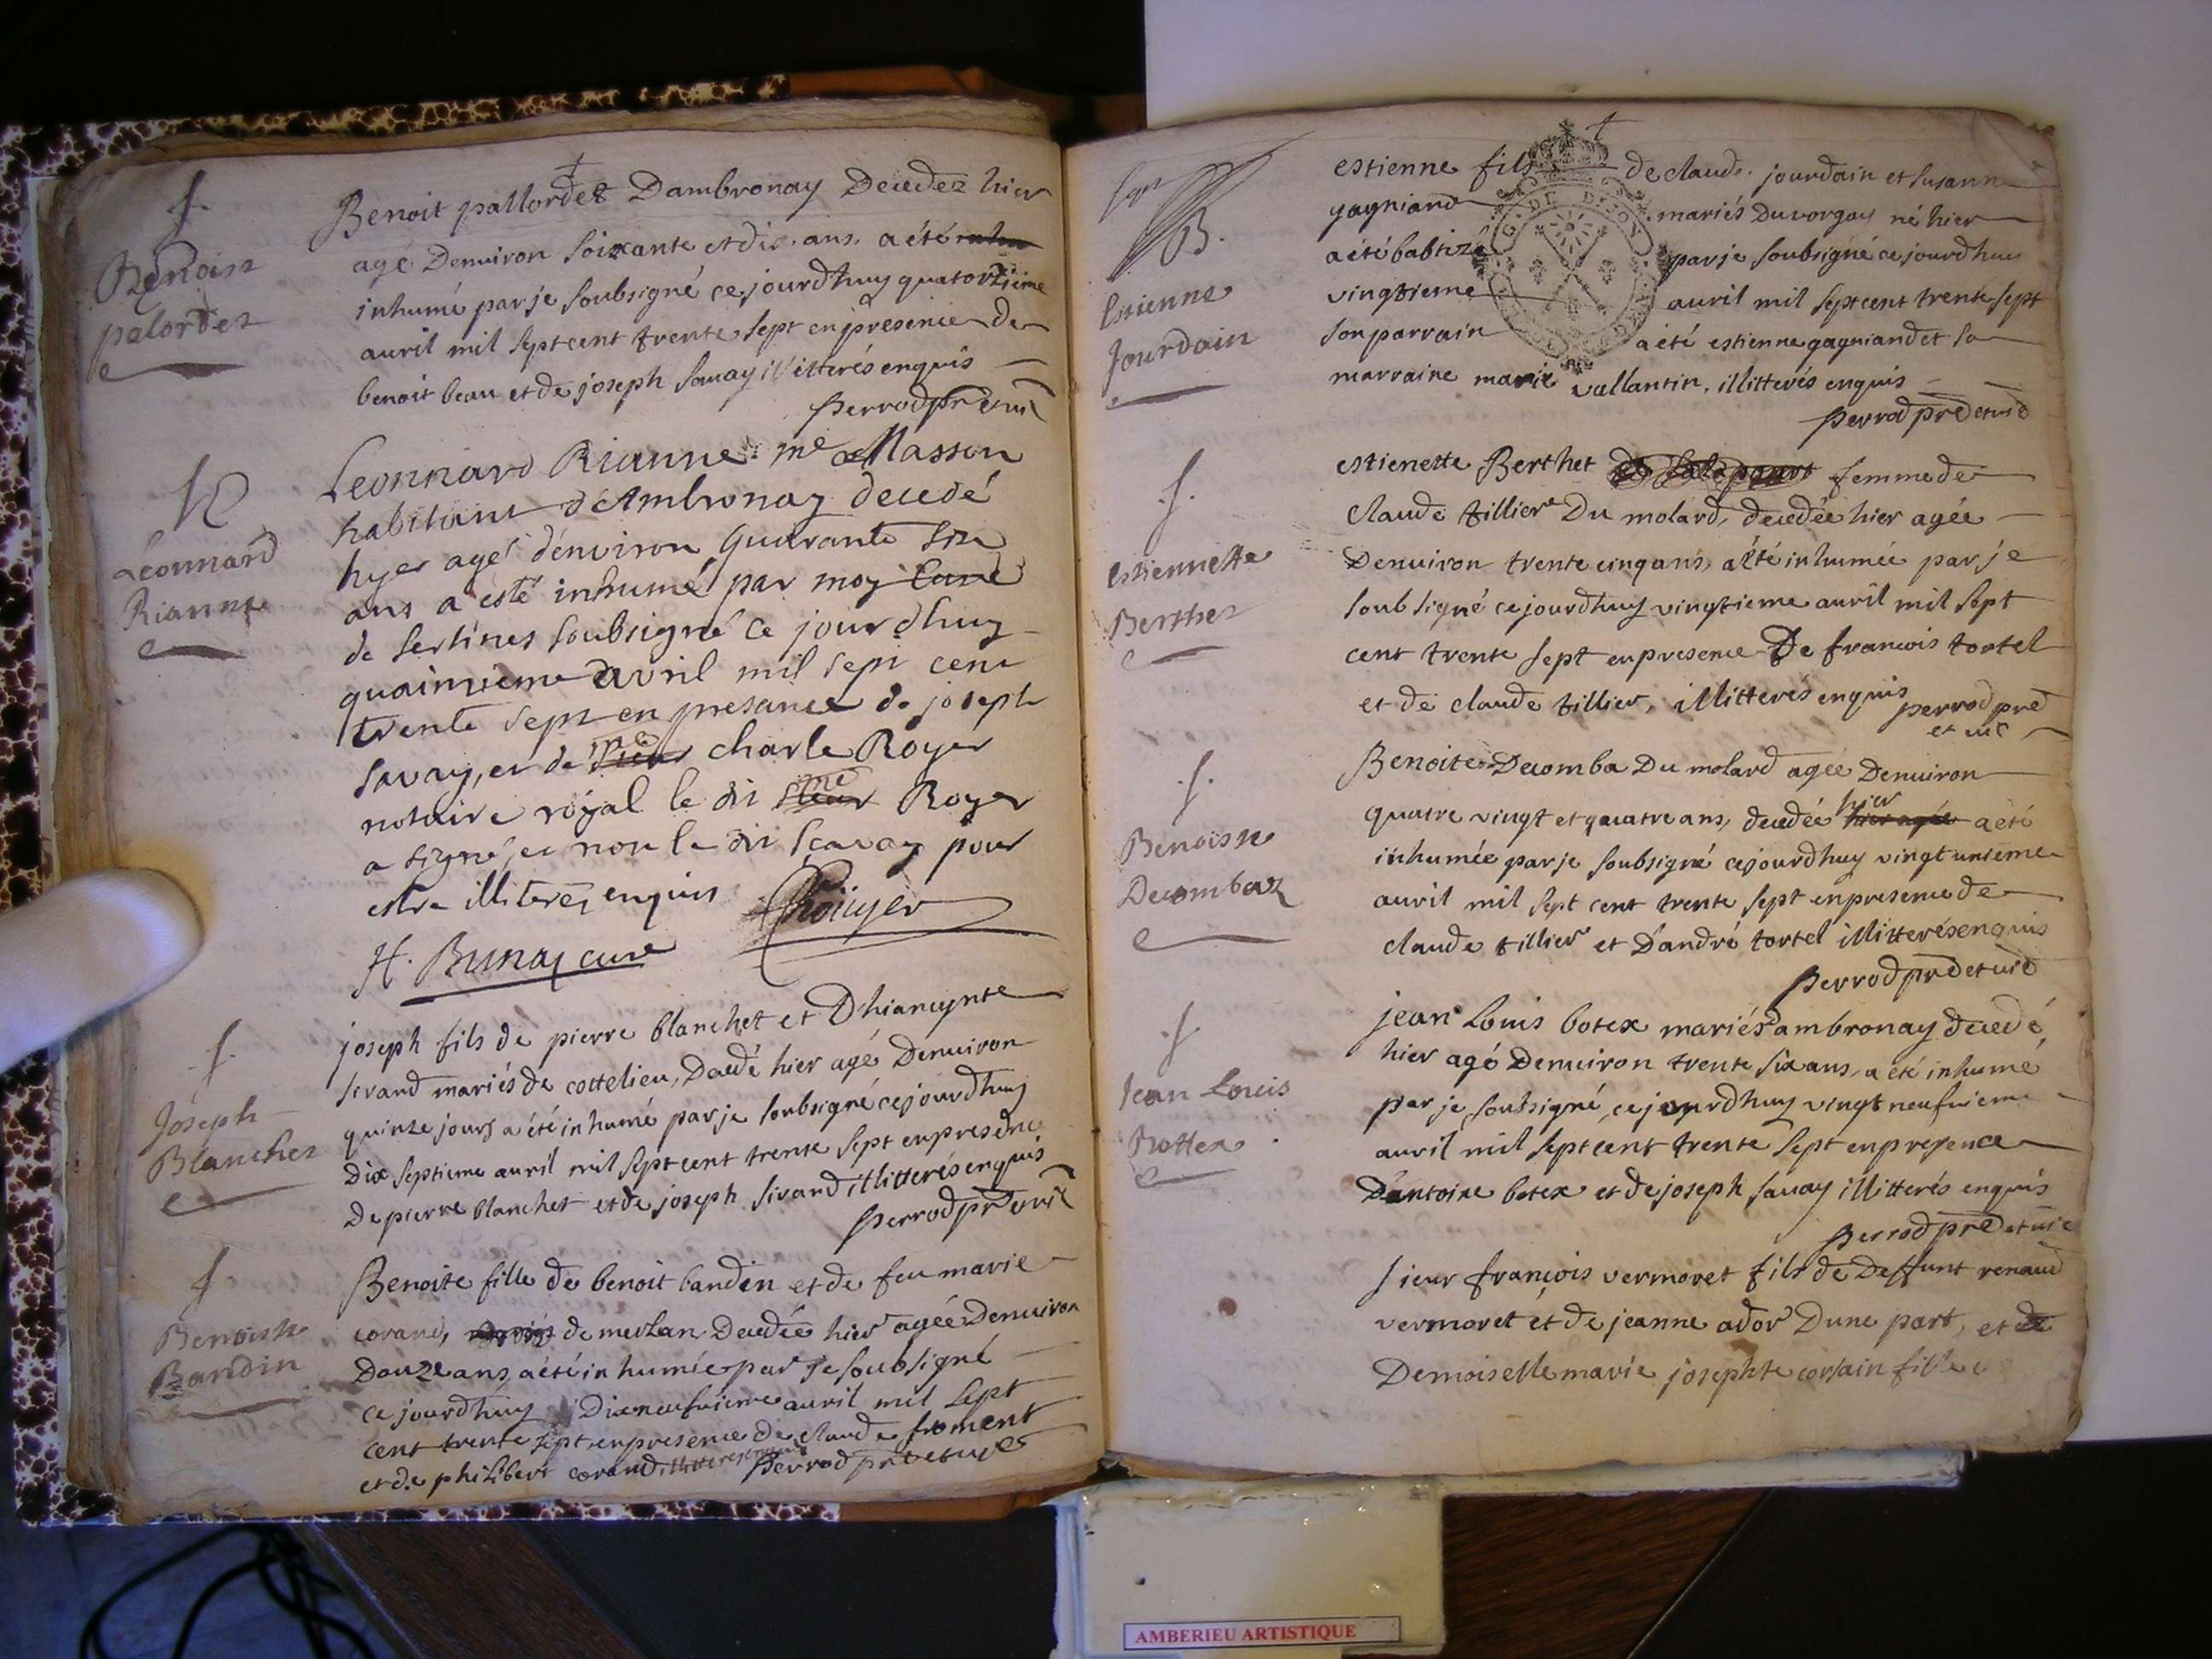 f.
Benoist
pelordet
Benoit pallordet Dambronay Decedez hier
agé Denuiron soixante et dix. ans. a été
inhumé par je soubsigné ce jourdhuy quatorzieme
auril mil sept cent trente sept en presence de
benoit beau et de joseph sauay illitterés enquis
perrod
Léonnard
Rianne
Leonnard Rianne me Masson
habitant d'Ambronay decedé
hyer agé d'enuiron quarante six
ans a esté inhumé par moy curé
de sertines soubsigné ce jourdhuy
quainzieme avril mil sept cent
trente sept en presance de joseph
savay, et de me charle Royer
notaire royal le dit me Royer
a signé, et non le dit scavay pour
estre illiteres enquis
Roüyer
H. Bunay curé
f.
Joseph
Blanchet
joseph fils de pierre blanchet et Dhiancynte
sivand mariés de cottelieu, Decedé hier agé Denuiron
quinze jours a été inhumé par je soubsigné cejourdhuy
Dix septieme auril mil sept cent trente sept en presence
De pierre blanchet et de joseph sivand illitterés enquis
perrod
f.
Benoiste
Bandin
Benoite fille de benoit bandin et de feu marie
corand, de merlan Decedée hier agée Denuiron
Douze ans a été inhumée par je soubsigné
ce jourdhuy Dixneufuieme auril mil sept
cent trente sept, en presence de claude froment
et de philibert corand illitteres enquis perrod
B.
Estienne
Jourdain
estienne fils de claude jourdain et susanne
gagniand mariés Duvorgay né hier
a été babtizé par je soubsigné ce jourdhuy
vingtieme auril mil sept cent trente sept
son parrain a été estienne gagniand et sa
marraine marie vallantin, illitterés enquis
perrod
f.
Estiennette
Berthet
estienette Berthet femme de
claude tillier Du molard, decedée hier agée
Denuiron trente cinq ans, a été inhumée par je
soubsigné ce jourdhuy vingtieme auril mil sept
cent trente sept en presence De francois tortel
et de claude tillier, illitterés enquis perrod
f.
Benoiste
Decombaz
Benoite Decomba Du molard agée Denuiron
quatre vingt et quatre ans, decedée hier a été
inhumée par je soubsigné cejourdhuy vingt unieme
auril mil sept cent trente sept en presence de
claude tillier et D'andré tortel illitterés enquis
perrod
f
Jean Louis
Bottex
jean Louis botex mariés dambronay decedé
hier agé Denuiron trente six ans, a été inhumé
par je soubsigné, ce jourdhuy vingt neufuieme
auril mil sept cent trente sept en presence
D'antoine botex et de joseph sauay illitterés enquis
perrod
sieur françois vermoret fils de Deffunt renaud
vermoret et de jeanne ador Dune part, et
Demoiselle marie josephte corsain fille
AMBERIEU ARTISTIQUE